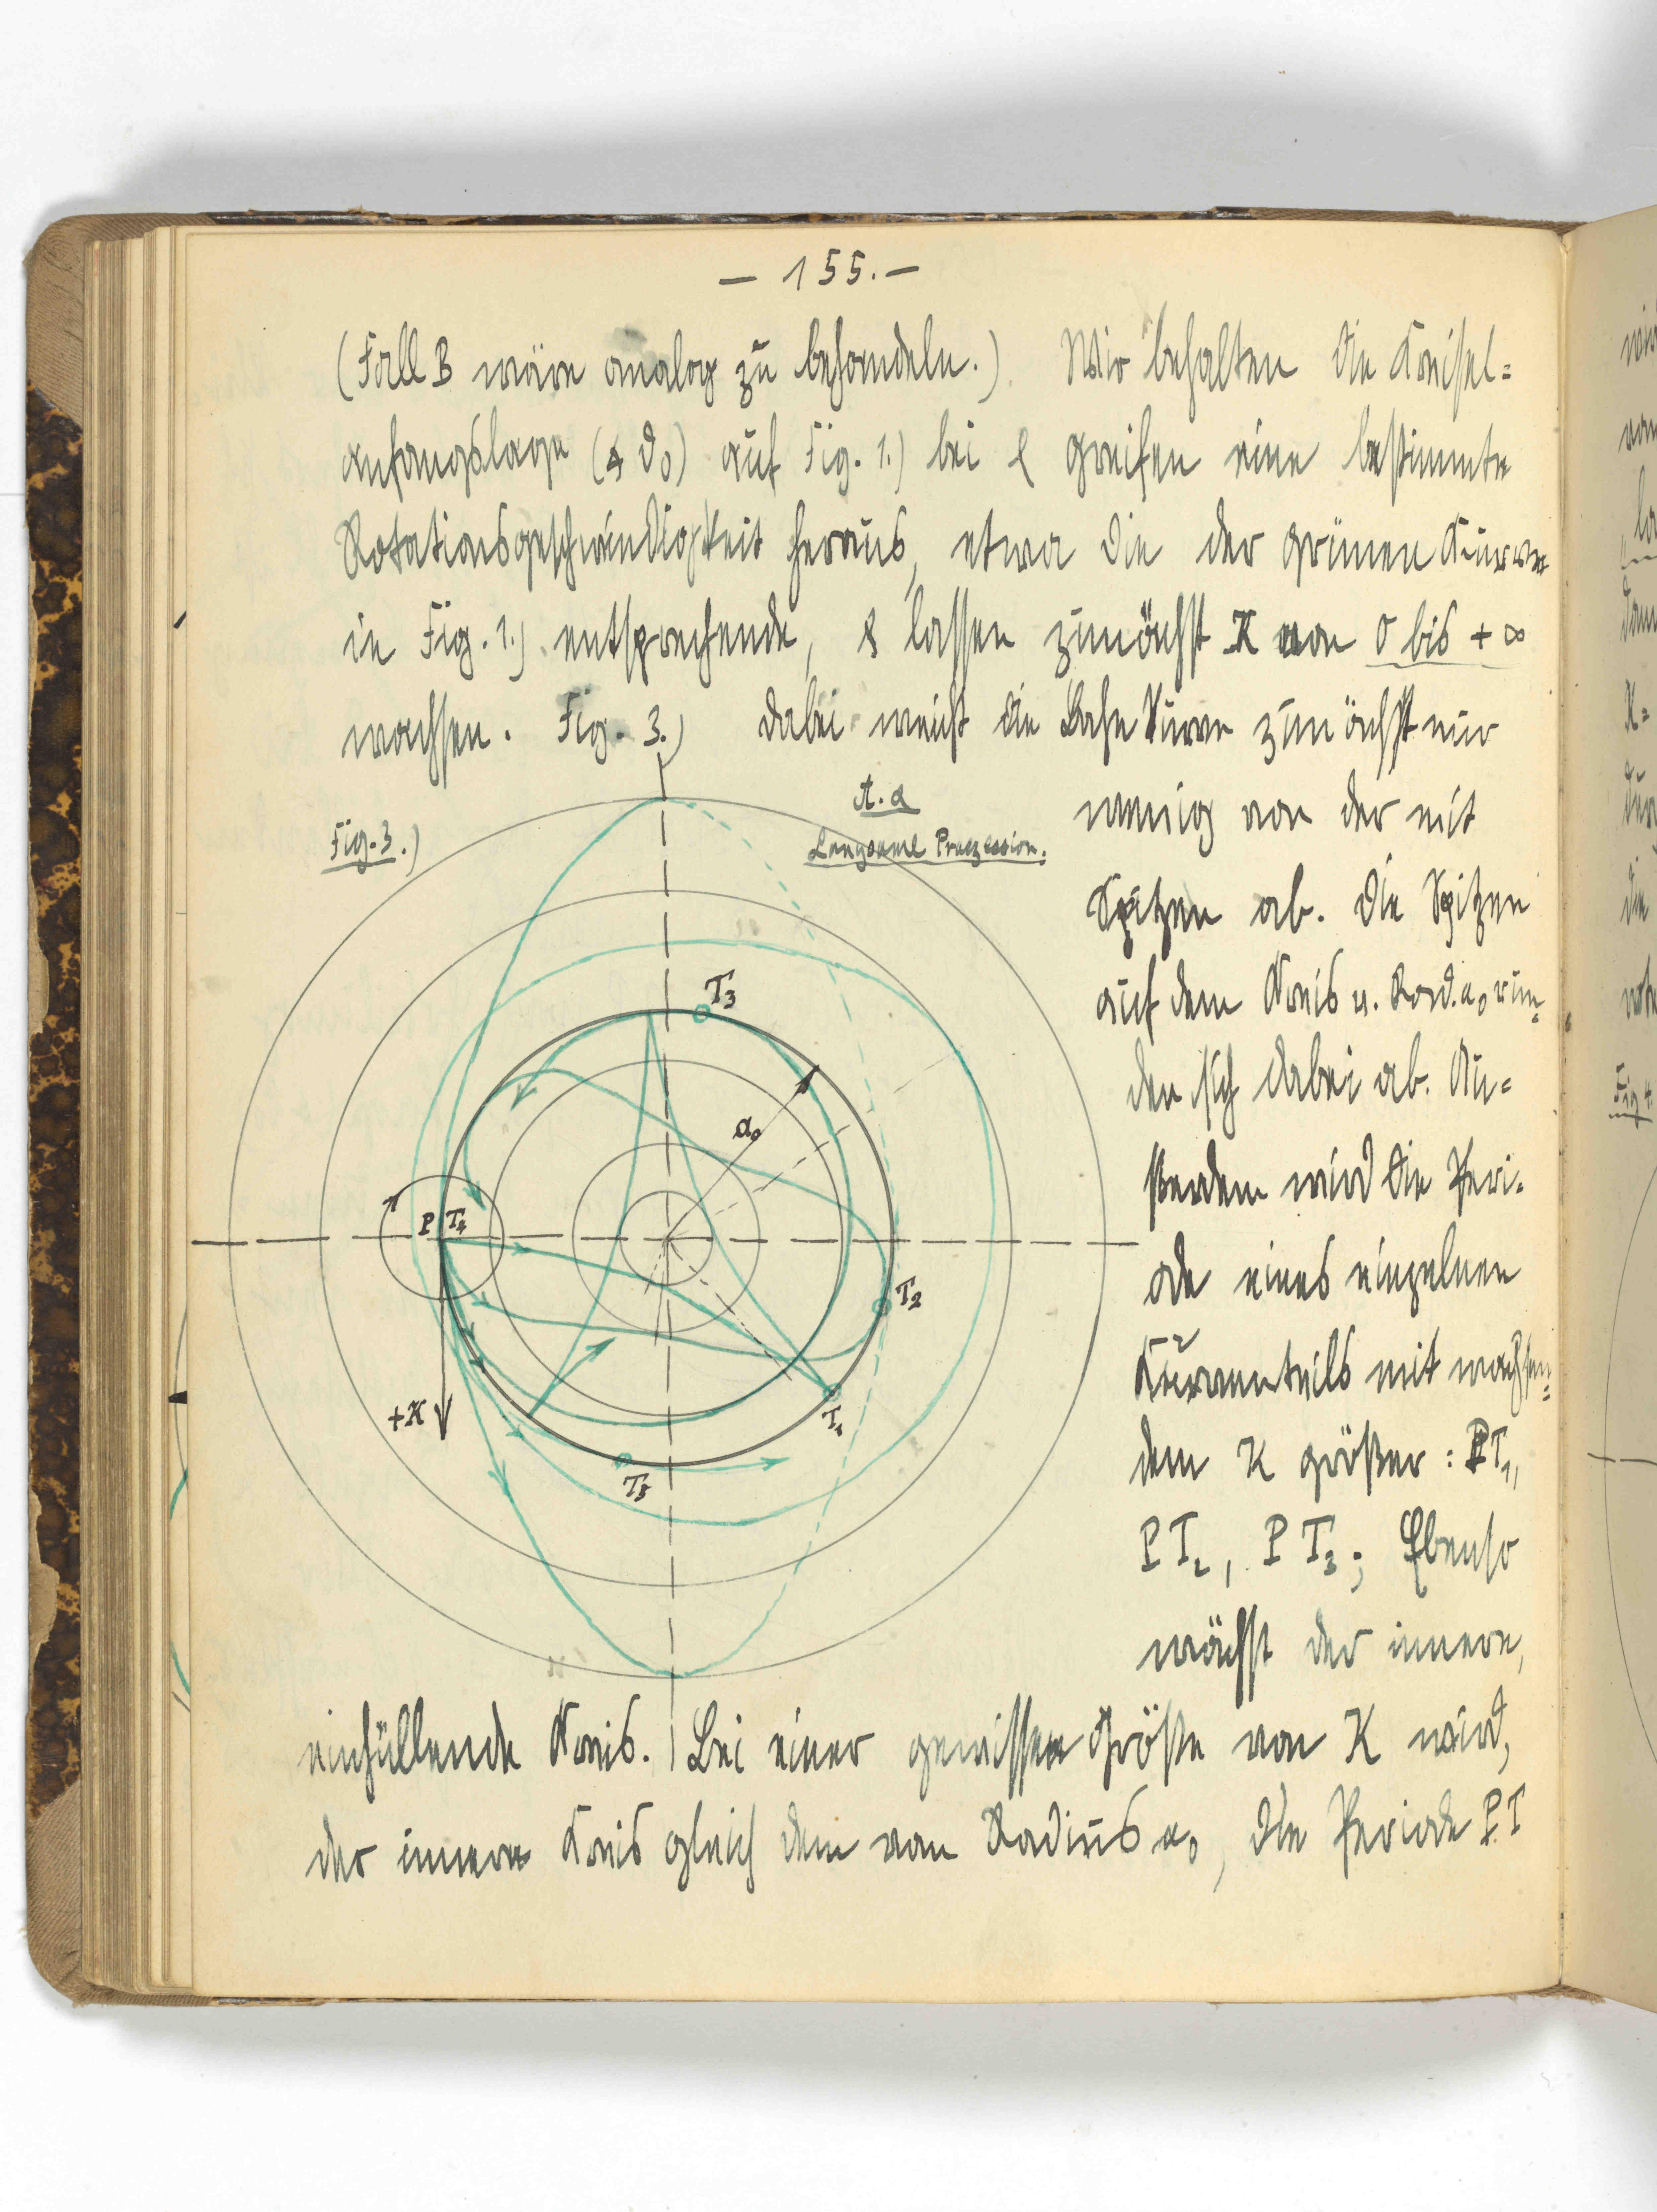 — 155. —
(Fall B wäre analog zu behandeln.) Wir behalten die Kreisel=
anfangslage (∢ ϑ₀) auf Fig. 1.) bei & greifen eine bestimmte
Rotationsgeschwindigkeit heraus, etwa die der grünen Kurve
in Fig. 1.) entsprechende, & lassen zunächst K von 0 bis + ∞
wachsen. Fig. 3.) Dabei weicht die Bahnkurve zunächst nur
wenig von der mit
Spitzen ab. Die Spitzen
auf dem Kreis v. Rad. a₀ run=
den sich dabei ab. Au=
sserdem wird die Peri=
ode eines einzelnen
Kurventeils mit wachsen=
dem K größer: PT₁,
PT₂, PT₃; Ebenso
wächst der innere,
einhüllende Kreis. Bei einer gewissen Größe von K wird,
der innere Kreis gleich dem von Radius a₀, die Periode PT
Fig. 3.)
A. a
Langsame Praezession.
T₃
a₀
P
T₄
T₂
T₁
+K
T₅
Fig 4.